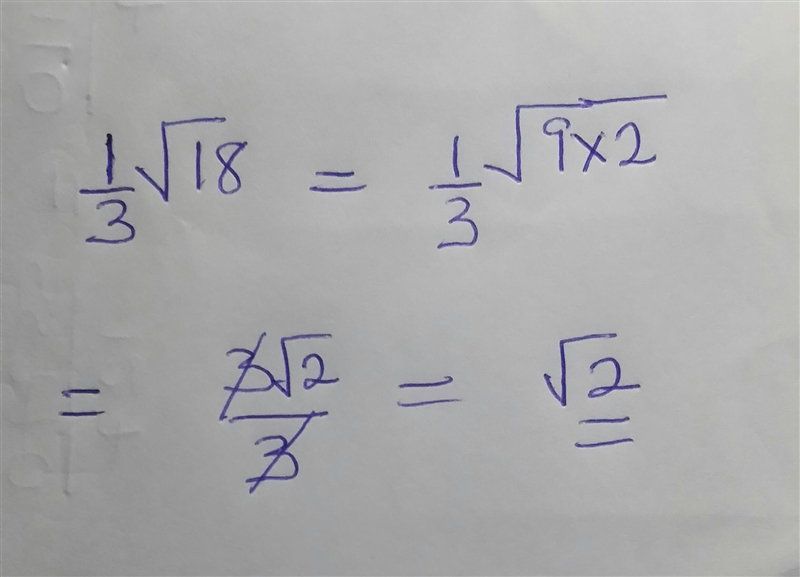 1/3 √18 = 1/3 √9×2
= 3√2/3 = √2